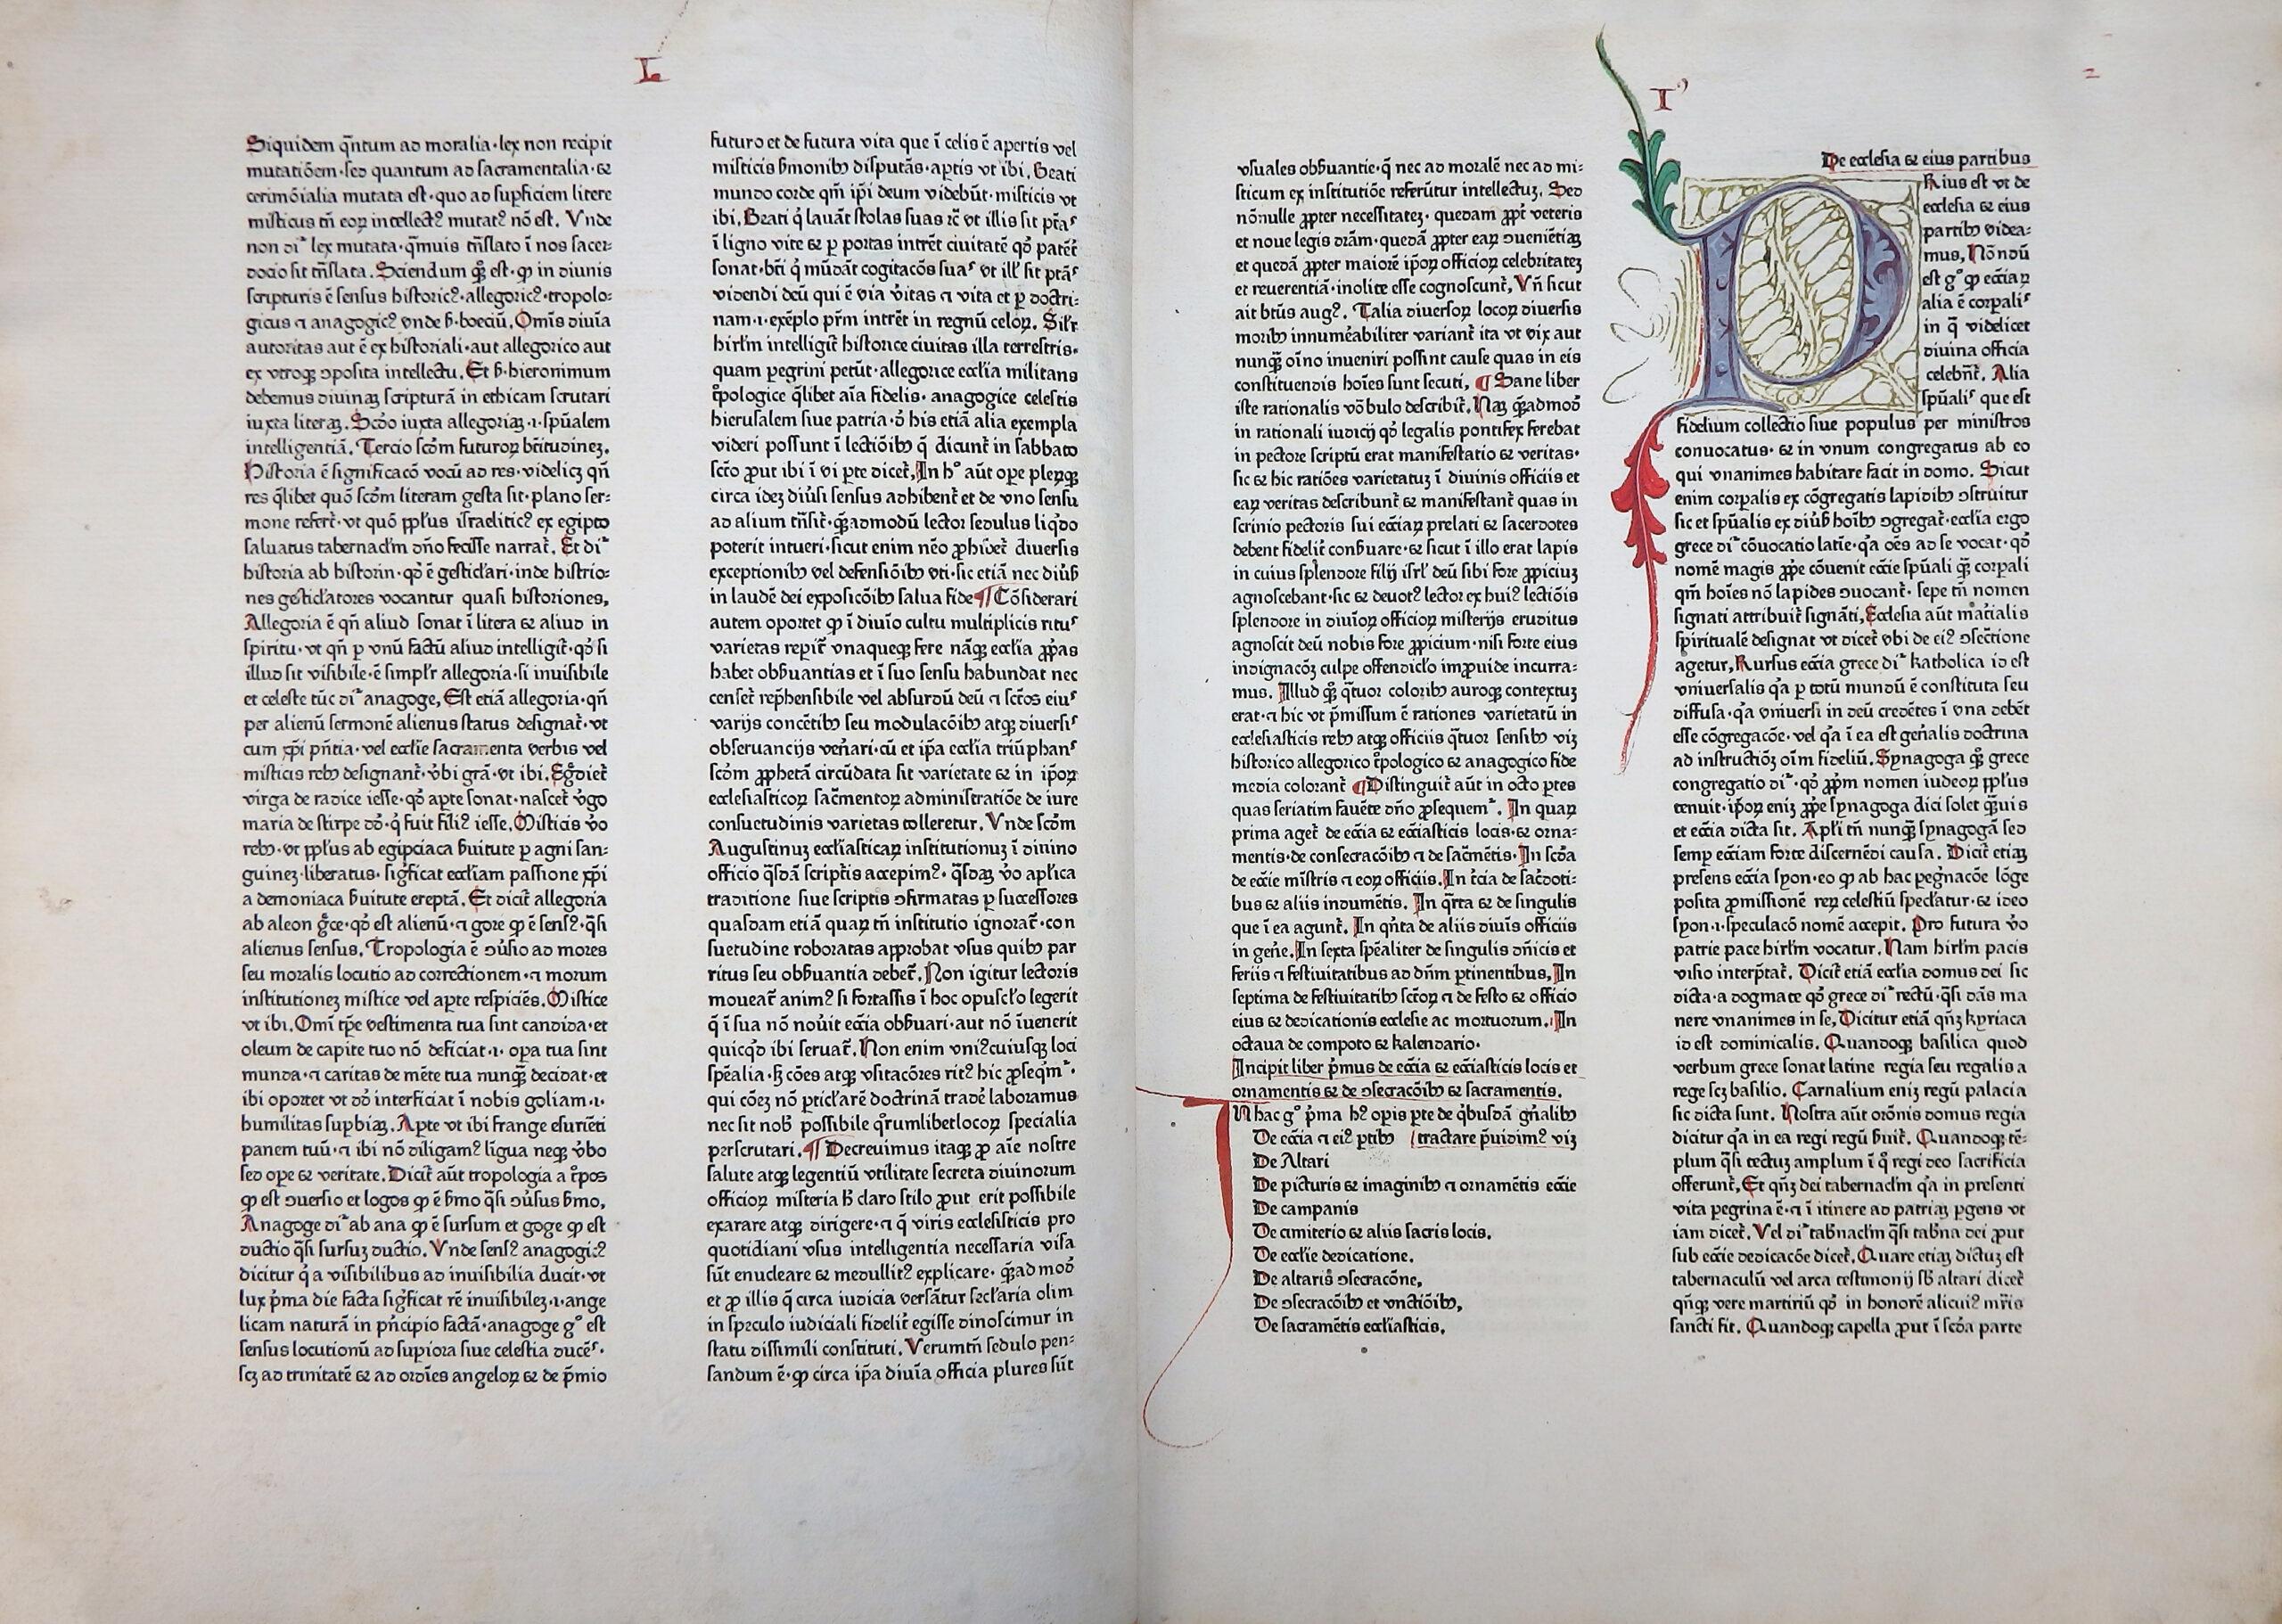 L
Siquidem q̄ntum ad moralia·lex non recipit
mutatiōem·sed quantum ad sacramentalia·&
cerimōialia mutata est·quo ad supficiem litere
misticus tn̄ eoꝝ intellectꝰ mutatꝰ nō est. Vnde
non di᷑ lex mutata·q̄muis tn̄slato ī nos sacer⸗
docio sit tn̄slata. Sciendum qꝫ̄ est·ꝙ in diuinis
scripturis ē sensus historicꝰ·allegoricꝰ·tropolo⸗
gicus ⁊ anagogicꝰ vnde ẜ·boeciū. Om̄is diuīa
autoritas aut ē ex historiali·aut allegorico aut
ex vtroqꝫ ↄposita intellectu. Et ẜ·hieronimum
debemus diuinaꝫ scripturā in ethicam scrutari
iuxta literaꝫ. Scd̄o iuxta allegoriaꝫ·i·spūalem
intelligentiā. Tercio scd̄m futuroꝝ bt̄itudinez.
Historia ē significacō vocū ad res·videlicꝫ qn̄
res q̄libet quō scd̄m literam gesta sit·plano ser⸗
mone refert᷑·vt quō ppl̄us israeliticꝰ ex egipto
saluatus tabernacl̄m dn̄o fecisse narrat᷑. Et di᷑
historia ab historin·qd̄ ē gesticl̄ari·inde histrio⸗
nes gesticl̄atores vocantur quasi historiones.
Allegoria ē qn̄ aliud sonat ī litera & aliud in
spiritu·vt qn̄ p vnū factū aliud intelligit᷑·qd̄ si
illud sit visibile·ē simpl̄r allegoria·si inuisibile
et celeste tūc di᷑ anagoge. Est etiā allegoria·qn̄
per alienū sermonē alienus status designat᷑·vt
cum xp̄i pn̄tia·vel eccl̄ie sacramenta verbis vel
misticis rebꝫ designant᷑·v̓bi grā·vt ibi. Egd̄iet᷑
virga de radice iesse·qd̄ apte sonat·nascet᷑ v̓go
maria de stirpe dd̄·q̇ fuit filiꝰ iesse. Misticis v̓o
rebꝫ·vt ppl̄us ab egipciaca ẜuitute p agni san⸗
guinez·liberatus·sigf̓icat eccl̄iam passione xp̄i
a demoniaca ẜuitute ereptā. Et dicit᷑ allegoria
ab aleon gr̄ce·qd̄ est alienū·⁊ gore ꝙ ē sensꝰ·q̄si
alienus sensus. Tropologia ē ↄu̓sio ad mores
seu moralis locutio ad correctionem·⁊ morum
institutionez mistice vel apte respiciēs. Mistice
vt ibi. Omī tp̄e vestimenta tua sint candida·et
oleum de capite tuo nō deficiat·i· opa tua sint
munda·⁊ caritas de mēte tua nunqꝫ̄ decidat·et
ibi oportet vt dd̄ interficiat ī nobis goliam·i·
humilitas supbiaꝫ. Apte vt ibi frange esuriēti
panem tuū·⁊ ibi nō diligamꝰ līgua neqꝫ v̓bo
sed ope & veritate. Dicit᷑ aūt tropologia a tͦpos
ꝙ est ↄuersio et logos ꝙ ē ẜmo q̄si ↄu̓sus ẜmo.
Anagoge di᷑ ab ana ꝙ ē sursum et goge ꝙ est
ductio q̄si sursuꝫ ductio. Vnde sensꝰ anagogicꝰ
dicitur q̓ a visibilibus ad inuisibilia ducit·vt
lux p̓ma die facta sigf̓icat rē inuisibilez·i·ange
licam naturā in pn̓cipio factā·anagoge gͦ est
sensus locutionū ad supiora siue celestia ducēˢ·
scꝫ ad trinitatē & ad ordīes angeloꝝ & de p̄mio
futuro et de futura vita que ī celis ē apertis vel
misticis ẜmonibꝫ disputās·aptis vt ibi. Beati
mundo corde qm̄ ip̄i deum videbūt·misticis vt
ibi. Beati q̇ lauāt stolas suas rc̄ vt illis sit ptāˢ
ī ligno vite & p portas intrēt ciuitatē qd̄ patēt᷑
sonat·bt̄i q̇ mūdāt cogitacōs suaˢ vt ill̓ sit ptāˢ
videndi deū qui ē via v̓itas ⁊ vita et p doctri⸗
nam·i·exēplo pr̄m intrēt in regnū celoꝝ. Sil̓r
hirl̄m intelligit᷑ historice ciuitas illa terrestris·
quam pegrini petūt·allegorice eccl̄ia militans
tͦpologice q̄libet aīa fidelis· anagogice celestis
hierusalem siue patria·d̓ his etiā alia exempla
videri possunt ī lectiōibꝫ q̄ dicunt᷑ in sabbato
sct̄o ꝓut ibi ī vi pte dicet᷑. In hͦ aūt ope pleꝝqꝫ
circa idez diu̓si sensus adhibent᷑ et de vno sensu
ad alium tn̄sit᷑·qꝫ̄admodū lector sedulus liq̇do
poterit intueri·sicut enim nēo ꝓhibet᷑ diuersis
exceptionibꝫ vel defensiōibꝫ vti·sic etiā nec diu̓ẜ
in laudē dei exposicōibꝫ salua fide ¶ Cōsiderari
autem oportet ꝙ ī diuīo cultu multiplicis rituˢ
varietas repit᷑ vnaqueqꝫ fere nāqꝫ eccl̄ia ꝓp̄as
habet obẜuantias et ī suo sensu habundat nec
censet᷑ rep̄hensibile vel absurdū deū ⁊ sct̄os eiuˢ
varijs concētibꝫ seu modulacōibꝫ atqꝫ diuersiˢ
obseruancijs ven̓ari·cū et ip̄a eccl̄ia triūphanˢ
scd̄m ꝓphetā circūdata sit varietate & in ip̄oꝝ
ecclesiasticoꝝ sac̄mentoꝝ administratiōe de iure
consuetudinis varietas tolleretur. Vnde scd̄m
Augustinuꝫ eccl̄iasticaꝝ institutionuꝫ ī diuino
officio q̄sdā scriptis accepimꝰ·q̄sdaꝫ v̓o apl̄ica
traditione siue scriptis ↄfirmatas p successores
quasdam etiā quaꝝ tn̄ institutio ignorat᷑·con
suetudine roboratas approbat vsus quibꝫ par
ritus seu obẜuantia debet᷑. Non igitur lectoris
moueat᷑ animꝰ si fortassis ī hoc opuscl̄o legerit
q̄ ī sua nō nou̓it ecc̄ia obẜuari·aut nō īuenerit
quicq̄d ibi seruat᷑. Non enim vniꝰcuiusqꝫ loci
spēalia·ẜꝫ cōes atqꝫ vsitacōres ritꝰ hic ꝓseq̄m᷑·
qui cōez nō pticl̄arē doctrinā tradē laboramus
nec sit nob̓ possibile q̓rumlibetlocoꝝ specialia
perscrutari. ¶ Decreuimus itaqꝫ ꝓ aīe nostre
salute atqꝫ legentiū vtilitate secreta diuinorum
officioꝝ misteria ẜꝫ claro stilo ꝓut erit possibile
exarare atqꝫ dirigere·⁊ q̄ viris ecclesisticis pro
quotidiani vsus intelligentia necessaria visa
sūt enucleare & medullitꝰ explicare· qꝫ̄ad mod̄
et ꝓ illis q̄ circa iudicia versātur secl̄aria olim
in speculo iudiciali fidelit᷑ egisse dinoscimur in
statu dissimili constituti. Verumtn̄ sedulo pen⸗
sandum ē·ꝙ circa ip̄a diuīa officia plures sūt
Iꝰ
2
vsuales obẜuantie·q̄ nec ad moralē nec ad mi⸗
sticum ex institutiōe referūtur intellectuꝫ. Sed
nōnulle ꝓpter necessitatez· quedam ꝓpt᷑ veteris
et noue legis dr̄am·quedā ꝓpter eaꝝ ↄueniētiaꝫ
et quedā ꝓpter maiorē ip̄oꝝ officioꝝ celebritatez
et reuerentiā·inolite esse cognoscunt᷑. Vn̄ sicut
ait bt̄us augꝰ. Talia diuersoꝝ locoꝝ diuersis
moribꝫ innumēabiliter variant᷑ ita vt vix aut
nunqꝫ̄ oīno inueniri possint cause quas in eis
constituendis hoīes sunt secuti. ¶ Sane liber
iste rationalis vōbulo describit᷑. Naꝫ qꝫ̄admod̄
in rationali iudicij qd̄ legalis pontifex ferebat
in pectore scriptū erat manifestatio & veritas·
sic & hic ratiōes varietatuꝫ ī diuinis officiis et
eaꝝ veritas describunt᷑ & manifestant᷑ quas in
scrinio pectoris sui ecc̄iaꝝ prelati & sacerdotes
debent fidelit᷑ conẜuare·& sicut ī illo erat lapis
in cuius splendore filij isrl̓ deū sibi fore ꝓpiciuꝫ
agnoscebant·sic & deuotꝰ lector ex huiꝰ lectiōis
splendore in diuīoꝝ officioꝝ misterijs eruditus
agnoscit deū nobis fore ꝓpicium·nisi forte eius
indignacōꝫ culpe offendicl̄o imꝓuide incurra⸗
mus. Illud qꝫ̄ q̄tuor coloribꝫ auroqꝫ contextuꝫ
erat·⁊ hic vt p̄missum ē rationes varietatū in
ecclesiasticis rebꝫ atqꝫ officiis q̄tuor sensibꝫ viꝫ
historico allegorico tͦpologico & anagogico fide
media colorant᷑ ¶ Distinguit᷑ aūt in octo ptes
quas seriatim fauēte dn̄o ꝓsequem᷑. In quaꝝ
prima aget᷑ de ecc̄ia & ecc̄iasticis locis·& orna⸗
mentis·de consecracōibꝫ ⁊ de sac̄mētis. In scd̄a
de ecc̄ie mīstris ⁊ eoꝝ officiis. In tc̄ia de sac̄doti⸗
bus & aliis indumētis. In q̄rta & de singulis
que ī ea agunt᷑. In qn̄ta de aliis diuīs officiis
in gen̓e. In sexta spēaliter de singulis dn̄icis et
feriis ⁊ festiuitatibus ad dn̄m ptinentibus. In
septima de festiuitatibꝫ sct̄oꝝ ⁊ de festo & officio
eius & dedicationis ecclesie ac mortuorum. In
octaua de compoto & kalendario·
Incipit liber p̓mus de ecc̄ia & ecc̄iasticis locis et
ornamentis & de ↄsecracōibꝫ & sacramentis.
IN hac gͦ p̓ma hꝰ opis pte de q̇busdā gn̄alibꝫ
De ecc̄ia ⁊ eiꝰ ptibꝫ tractare p̄uidimꝰ viꝫ
De Altari
De picturis & imaginibꝫ ⁊ ornamētis ecc̄ie
De campanis
De cimiterio & aliis sacris locis.
De eccl̄ie dedicatione.
De altaris ↄsecracōne.
De ↄsecracōibꝫ et vnctiōibꝫ.
De sacramētis eccl̄iasticis.
De ecclesia & eius partibus
PRius est vt de
ecclesia & eius
partibꝫ videa⸗
mus. Nō n̄dū
est gͦ ꝙ ecc̄iaꝝ
alia ē corpaliˢ
in q̄ videlicet
diuina officia
celebn̄t᷑. Alia
spūaliˢ que est
fidelium collectio siue populus per ministros
conuocatus·& in vnum congregatus ab eo
qui vnanimes habitare facit in domo. Sicut
enim corpalis ex cōgregatis lapidibꝫ ↄstruitur
sic et spūalis ex diu̓ẜ hoībꝫ ↄgregat᷑·eccl̄ia ergo
grece di᷑ cōuocatio latīe·q̓a oēs ad se vocat·qd̄
nomē magis ꝓpe cōuenit ecc̄ie spūali qꝫ̄ corpali
qm̄ hoīes nō lapides ↄuocant᷑· sepe tn̄ nomen
signati attribuit᷑ signāti. Ecclesia aūt mat̄ialis
spiritualē designat vt dicet᷑ vbi de eiꝰ ↄsect̄ione
agetur. Rursus ecc̄ia grece di᷑ katholica id est
vniuersalis q̓a p totū mundū ē constituta seu
diffusa·q̓a vniuersi in deū credētes ī vna debēt
esse cōgregacōe·vel q̓a ī ea est gen̄alis doctrina
ad instructiōꝫ oīm fideliū. Synagoga qꝫ̄ grece
congregatio di᷑·qd̄ ꝓpm nomen iudeoꝝ ppl̄us
tenuit·ip̄oꝝ eniꝫ ꝓpe synagoga dici solet qꝫ̄uis
et ecc̄ia dicta sit. Apl̄i tn̄ nunqꝫ̄ synagogā sed
semp ecc̄iam forte discernēdi causa. Dicit᷑ etiaꝫ
presens ecc̄ia syon·eo ꝙ ab hac pegn̓acōe lōge
posita ꝓmissionē reꝝ celestiū specl̄atur·& ideo
syon·i·speculacō nomē accepit. Pro futura v̓o
patrie pace hirl̄m vocatur. Nam hirl̄m pacis
visio interp̄tat᷑. Dicit᷑ etiā eccl̄ia domus dei sic
dicta·a dogmate qd̄ grece di᷑ rectū·q̄si dās ma
nere vnanimes in se. Dicitur etiā qn̄ꝫ kyriaca
id est dominicalis. Quandoqꝫ basilica quod
verbum grece sonat latine regia seu regalis a
rege scꝫ basilio. Carnalium eniꝫ regū palacia
sic dicta sunt. Nostra aūt orōnis domus regia
dicitur q̓a in ea regi regū ẜuit᷑. Quandoqꝫ tē⸗
plum q̄si tectuꝫ amplum ī q̇ regi deo sacrificia
offerunt᷑. Et qn̄ꝫ dei tabernacl̄m q̓a in presenti
vita pegrina ē·⁊ ī itinere ad patriaꝫ pgens vt
iam dicet᷑. Vel di᷑ tabnacl̄m q̄si tabn̄a dei ꝓut
sub ecc̄ie dedicacōe dicet᷑. Quare etiaꝫ dictuꝫ est
tabernaculū vel arca testimonij sb̄ altari dicet᷑
qn̄qꝫ vere martiriū qd̄ in honorē alicuiꝰ mr̄is
sancti fit. Quandoqꝫ capella ꝓut ī scd̄a parte